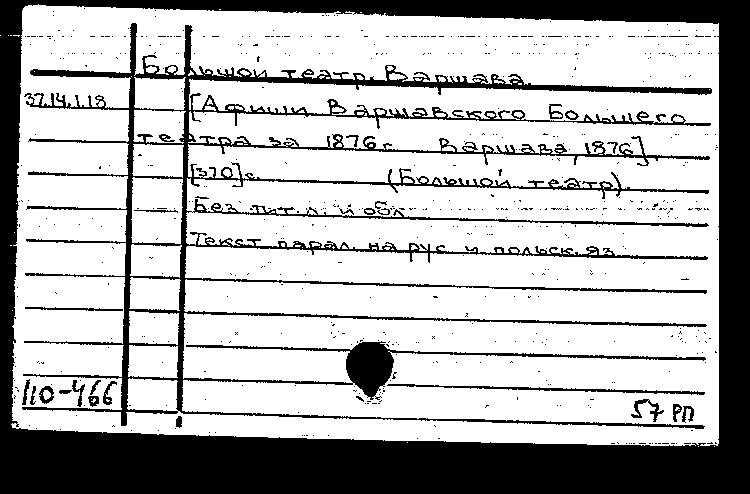 Большой театр. Варшава.
37.14.1.18 [Афиши Варшавского Большего
театра за 1876г. Варшава, 1876].
[370]с. (Большой театр).
Без тит. л. и обл.
Текст парал. на рус. и польск. яз.
110-466
57 РП